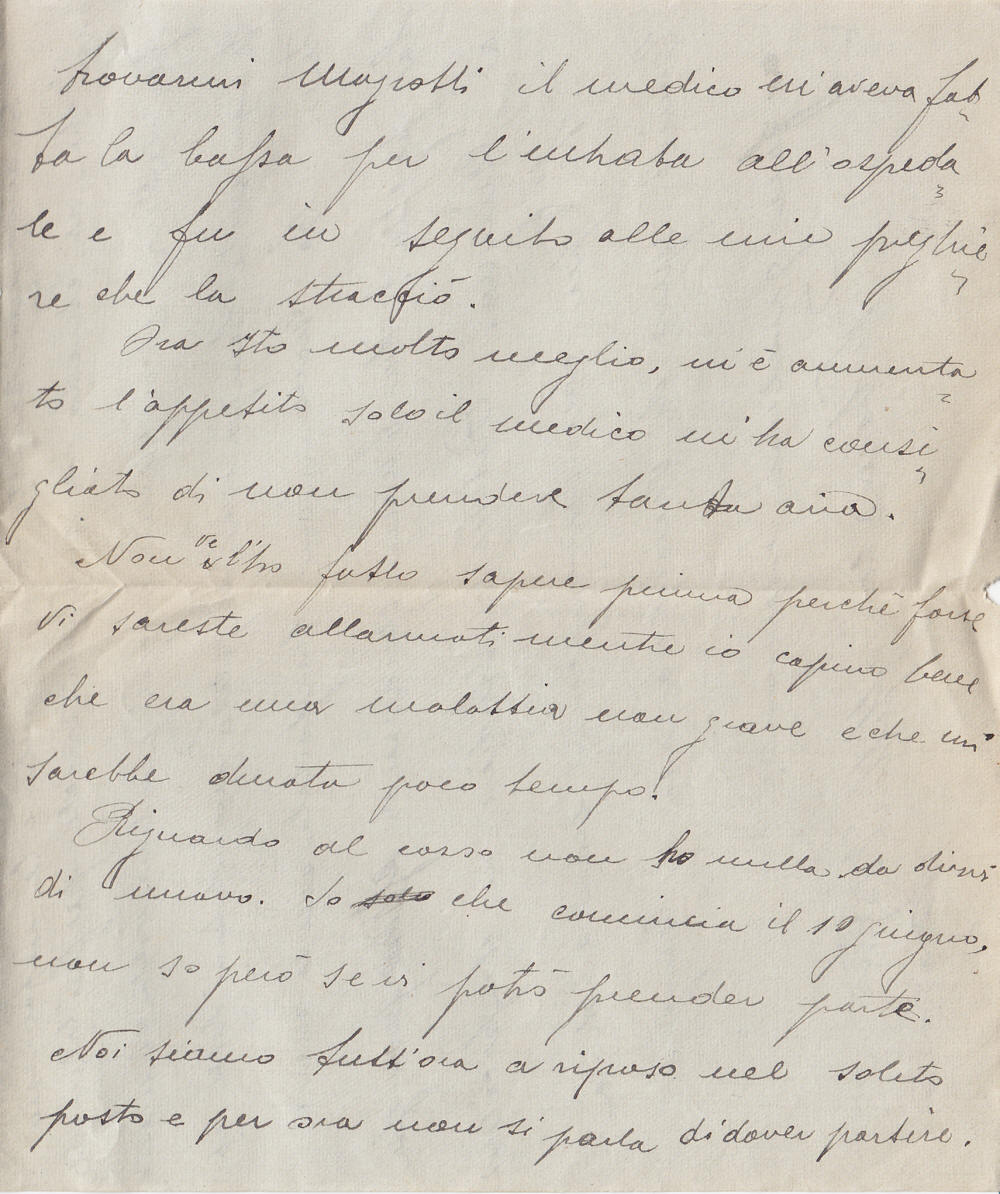 trovarmi Magrotti il medico m'aveva fat
ta la bassa per l'entrata all'ospeda
le e fu in seguito alle mie preghie
re che la stracciò.
Ora sto molto meglio, m'è aumenta
to l'appetito solo il medico m'ha consi
gliato di non prendere tanta aria.
Non ve l'ho fatto sapere prima perchè forse
vi sareste allarmati mentre io capivo bene
che era una malattia non grave e che mi
sarebbe durata poco tempo.
Riguardo al corso non ho nulla da dirvi
di nuovo. So solo che comincia il 10 giugno,
non so però se vi potrò prender parte.
Noi siamo tutt'ora a riposo nel solito
posto e per ora non si parla di dover partire.